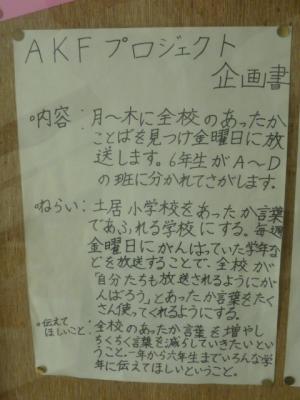 AKFプロジェクト
企画書
・内容：月～木に全校のあったか
ことばを見つけ金曜日に放
送します。6年生がA～D
の班に分かれてさがします。
・ねらい：土居小学校をあったか言葉
であふれる学校にする。毎週
金曜日にがんばっていた学年な
どを放送することで、全校が
「自分たちも放送されるようにがん
ばろう」とあったか言葉をたく
さん使ってくれるようにする。
・伝えて
ほしいこと：全校のあったか言葉を増やし
ちくちく言葉を減らしていきたいとい
うこと。一年から六年生までいろんな学
年に伝えてほしいということ。